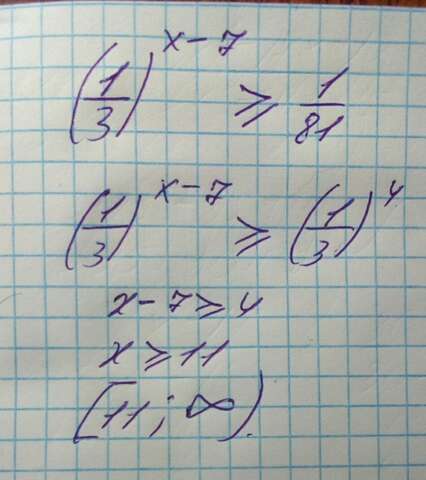 (1/3)^(x-7) ⩾ 1/81
(1/3)^(x-7) ⩾ (1/3)^4
x-7⩾4
x⩾11
[11; ∞).